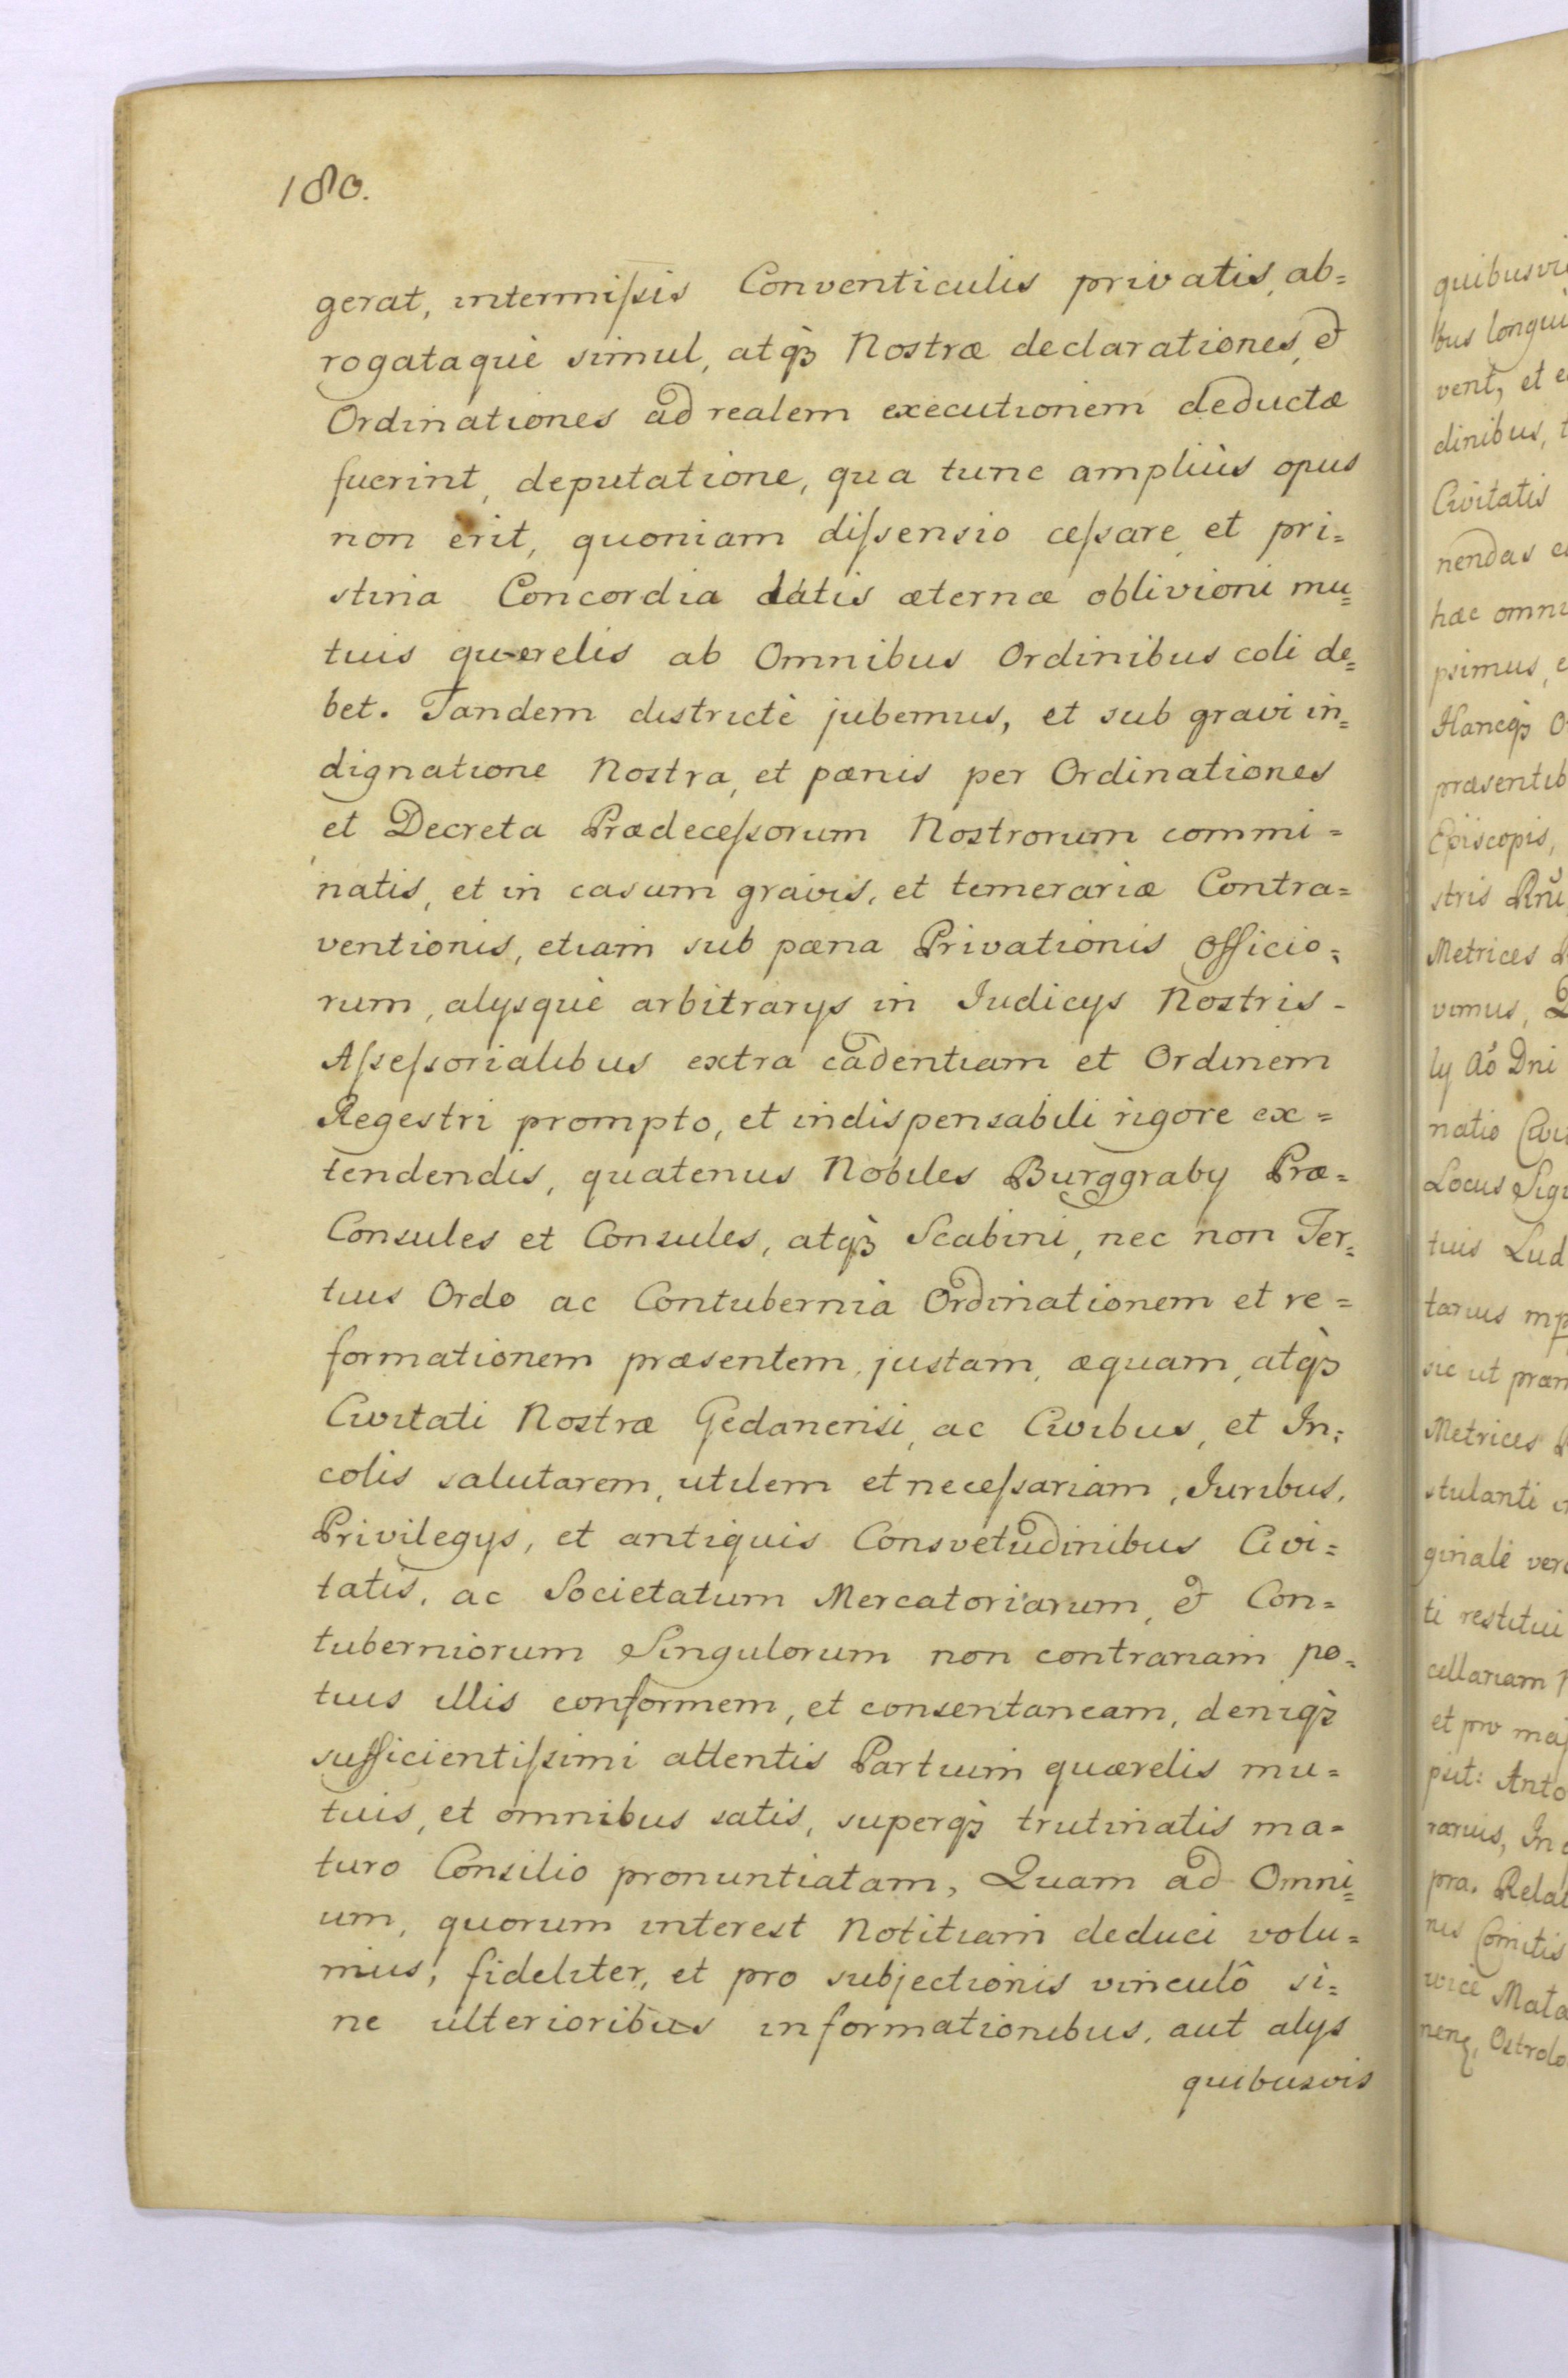 180.
gerat, intermiſsis Conventiculis privatis, ab=
rogataquè simul, atqꝫ Nostræ declarationes, et
Ordinationes ad realem executionem deductæ
fuerint, deputatione, qua tunc ampliùs opus
non erit, quoniam diſsensio ceſsare, et pri=
stina Concordia datis æternæ oblivioni mu=
tuis querelis ab Omnibus Ordinibus coli de=
bet. Tandem districtè jubemus, et sub gravi in=
dignatione Nostra, et pœnis per Ordinationes
et Decreta Prædeceſsorum Nostrorum commi=
natis, et in casum gravis, et temerariæ Contra=
ventionis, etiam sub pœna Privationis Officio=
rum, alysquè arbitrarys in Judicys Nostris-
Aſseſsorialibus extra cadentiam et Ordinem
Regestri prompto, et indispensabili rigore ex=
tendendis, quatenus Nobiles Burggraby Præ=
Consules et Consules, atqꝫ Scabini, nec non Ter=
tius Ordo ac Contubernia Ordinationem et re=
formationem præsentem, justam, æquam, atqꝫ
Civitati Nostræ Gedanensi, ac Civibus, et In=
colis salutarem, utilem et neceſsariam, Juribus,
Privilegys, et antiquis Consvetudinibus Civi=
tatis, ac Societatum Mercatoriarum, et Con=
tuberniorum Singulorum non contrariam po=
tius illis conformem, et consentaneam, deniqꝫ
sufficientiſsimi attentis Partium quærelis mu=
tuis, et omnibus satis, superqꝫ trutinatis ma=
turo Consilio pronuntiatam, Quam ad Omni=
um, quorum interest Notitiam deduci volu=
mus, fideliter, et pro subjectionis vinculô si=
ne ulterioribus informationibus, aut alys
quibusvis
bus longui
vent, et e
dinibus, t
Civitatis
nendas
hæc omni
psimus,
Hancqꝫ O
præsentib
Episcopis,
stris
Metrices
vimus,
ly Aô Dni
natio
Locus Sigi
tuis Lud
tarius mp
sic ut præm
Metrices
stulanti
ginalè ver
ti restitui
cellariam
et pro maj
put: Anto
rarius, In
pra. Relat
nis Comitis
Mata
Ostrolo